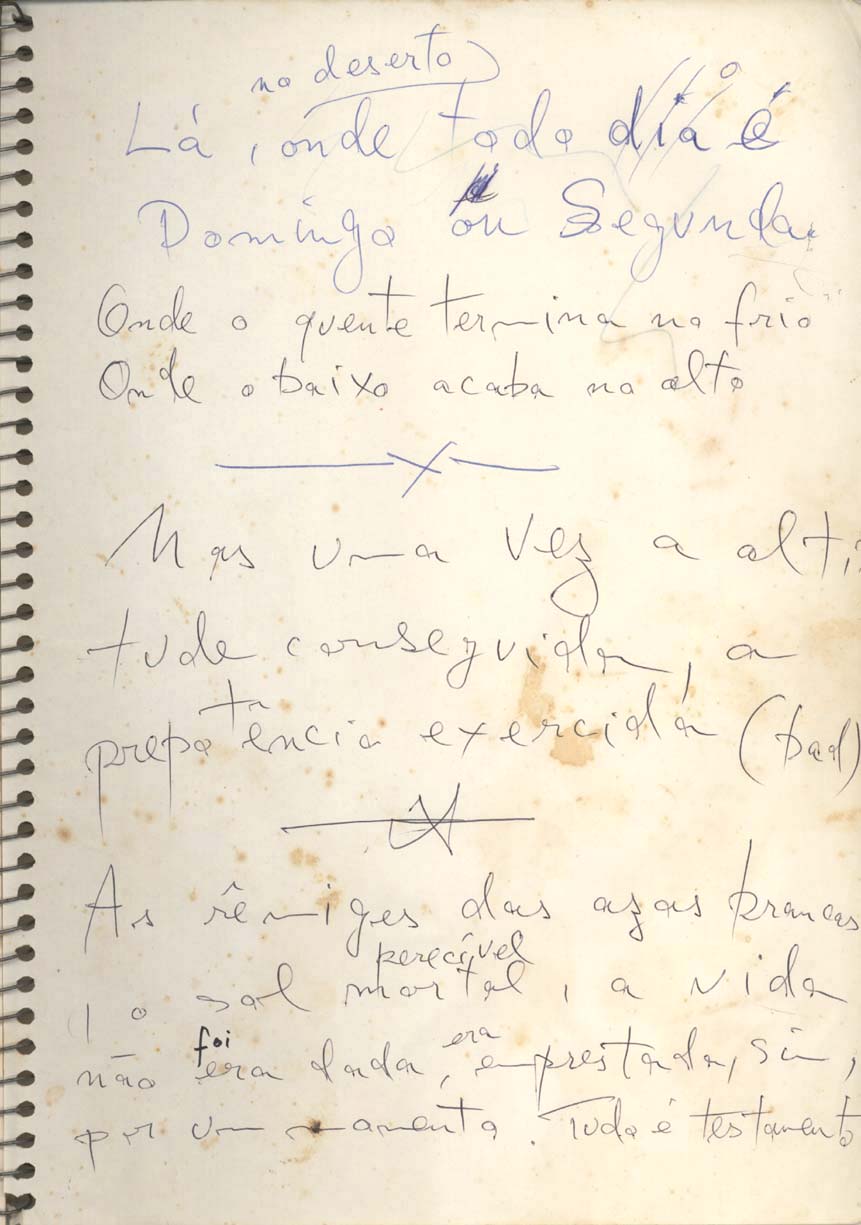 no deserto
Lá, onde todo dia é
Domingo ou Segunda.
Onde o quente termina no frio
Onde o baixo acaba no alto
X
Mas uma vez a alti
tude conseguida, a
prepotência exercida (bad)
As rêmiges das azas brancas
perecível
, o sol mortal, a vida
foi era
não era dada, emprestada, sim,
por um momento. Tudo é testamento